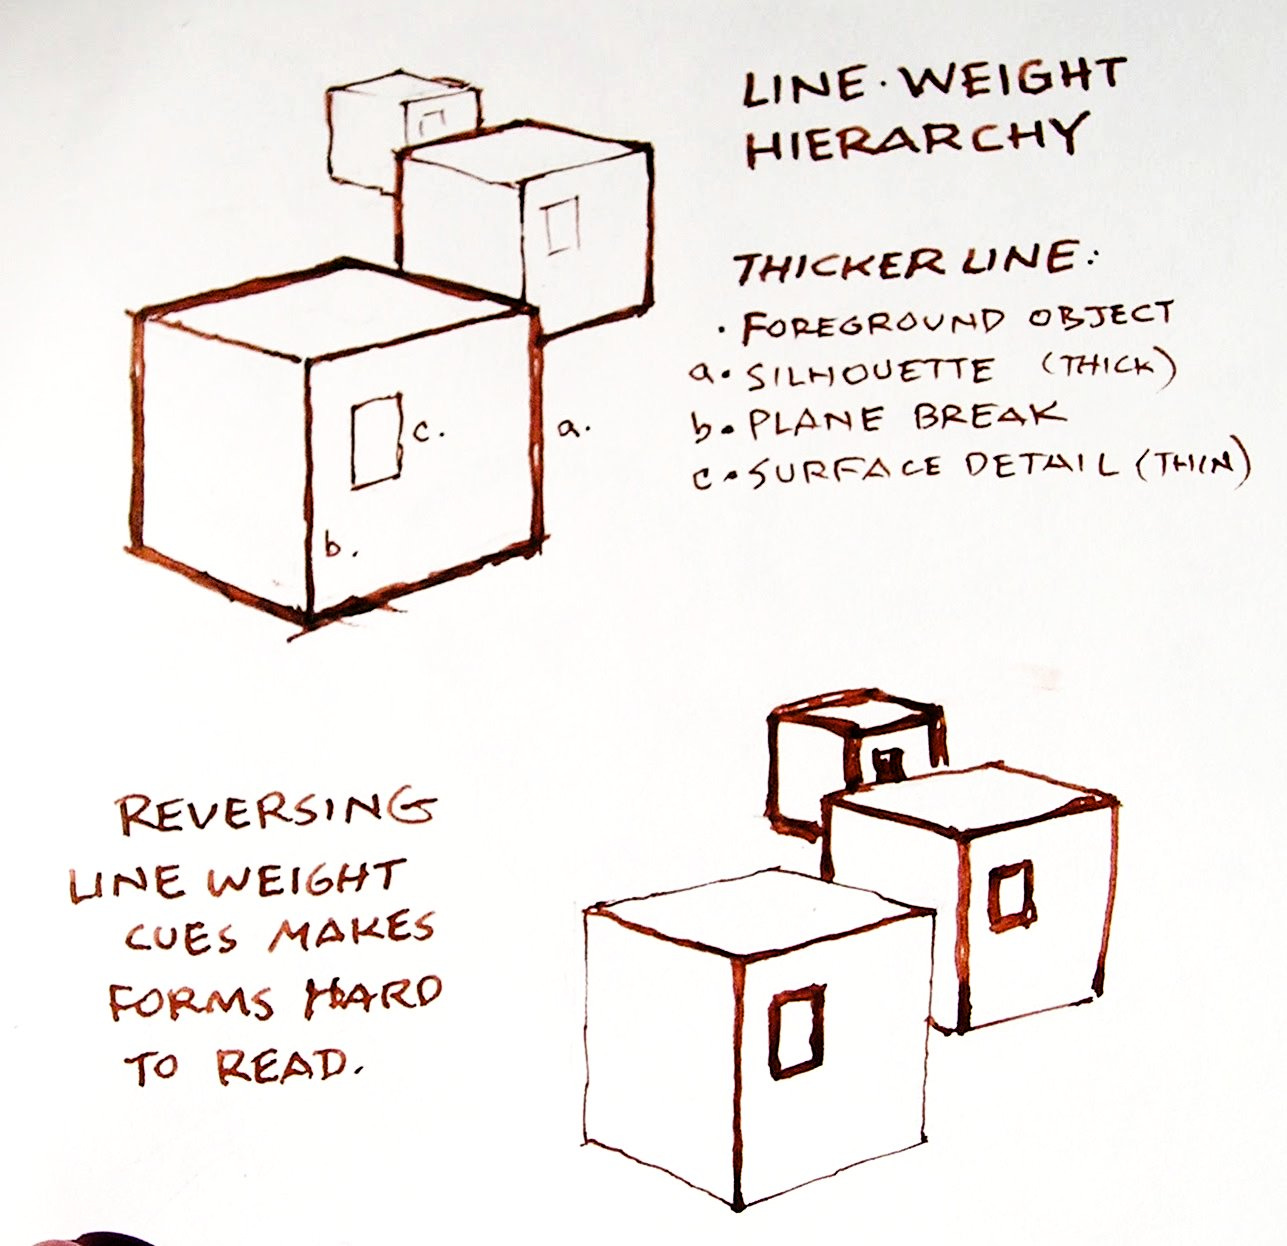 LINE·WEIGHT
HIERARCHY
THICKER LINE:
· FOREGROUND OBJECT
a. SILHOUETTE (THICK)
b. PLANE BREAK
c. SURFACE DETAIL (THIN)
c.
a.
b.
REVERSING
LINE WEIGHT
CUES MAKES
FORMS HARD
TO READ.